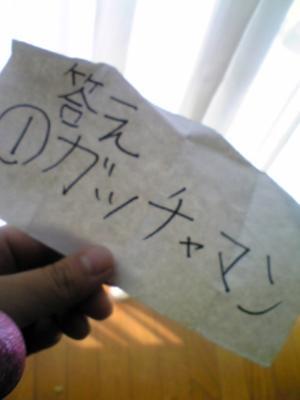 答え
①ガッチャマン